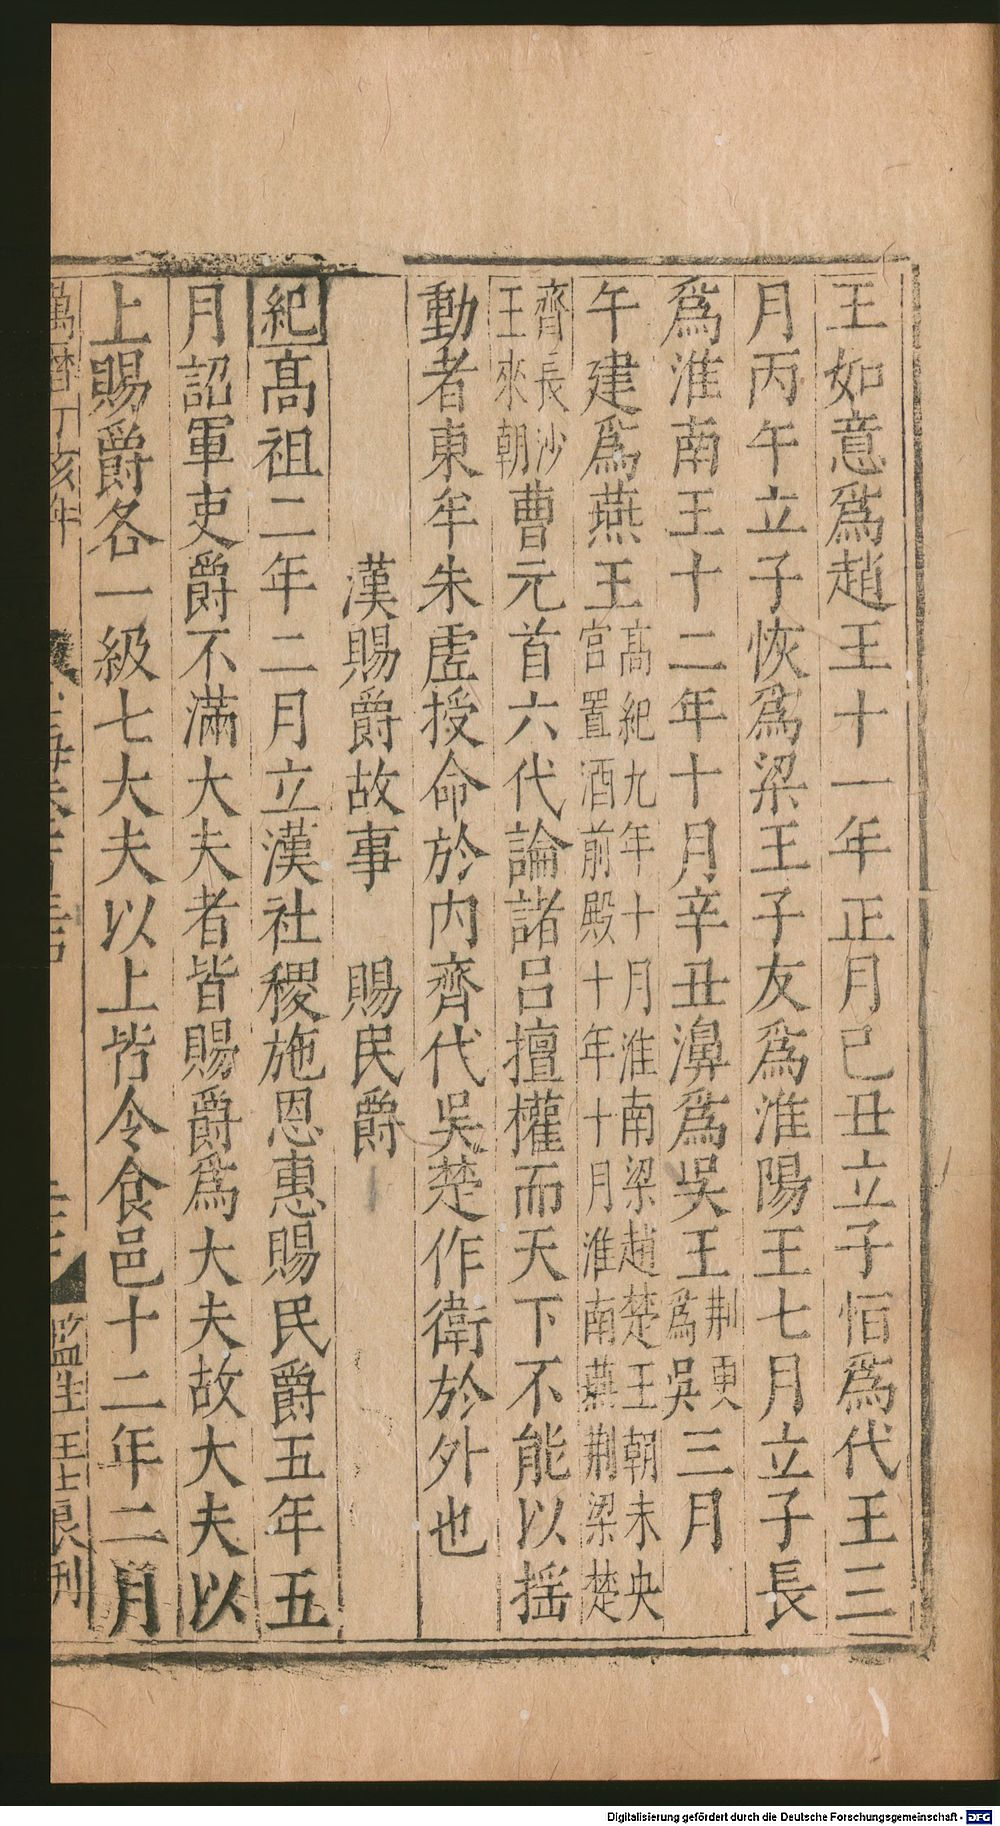 王如意爲趙王十一年正月己丑立子恒爲代王三
月丙午立子恢爲梁王子友爲淮陽王七月立子長
爲淮南王十二年十月辛丑濞爲吳王荆更爲吳三月
午建爲燕王高紀九年十月淮南梁趙楚王朝未央宫置酒前殿十年十月淮南燕荆梁楚
齊長沙王來朝曹元首六代論諸吕擅權而天下不能以揺
動者東牟朱虗授命於内齊代吳楚作衛於外也
漢賜爵故事　賜民爵
紀高祖二年二月立漢社稷施恩惠賜民爵五年五
月詔軍吏爵不滿大夫者皆賜爵爲大夫故大夫以
上賜爵各一級七大夫以上皆令食邑十二年二月
萬曆丁亥年
監生王士良刊
Digitalisierung gefördert durch die Deutsche Forschungsgemeinschaft - DFG